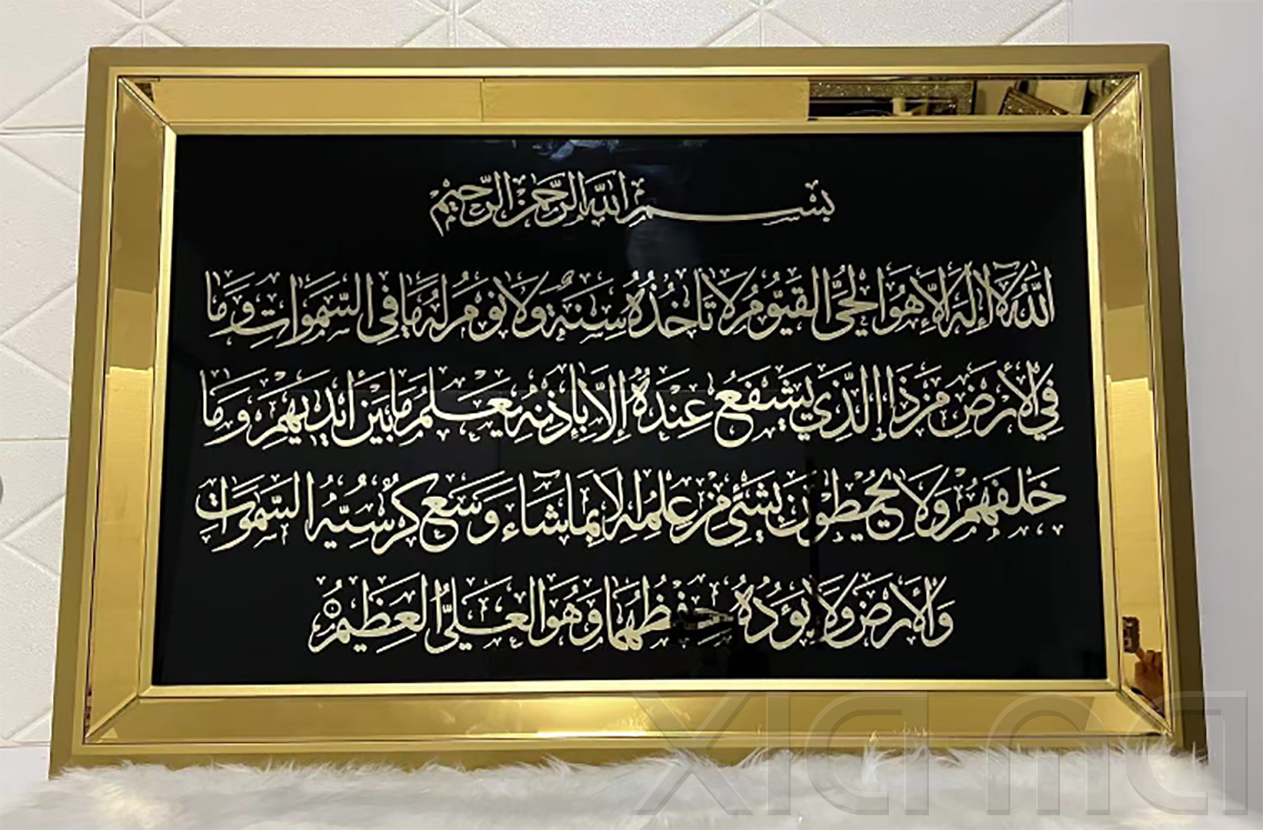 بسم الله الرحمن الرحيم
اللهُ لَا إِلَهَ إِلَّا هُوَ الْحَيُّ الْقَيُّومُ لَا تَأْخُذُهُ سِنَةٌ وَلَا نَوْمٌ لَهُ مَا فِي السَّمَوَاتِ وَمَا
فِي الْأَرْضِ مَنْ ذَا الَّذِي يَشْفَعُ عِنْدَهُ إِلَّا بِإِذْنِهِ يَعْلَمُ مَا بَيْنَ أَيْدِيهِمْ وَمَا
خَلْفَهُمْ وَلَا يُحِيطُونَ بِشَيْءٍ مِنْ عِلْمِهِ إِلَّا بِمَا شَاءَ وَسِعَ كُرْسِيُّهُ السَّمَوَاتِ
وَالْأَرْضَ وَلَا يَؤُدُهُ حِفْظُهُمَا وَهُوَ الْعَلِيُّ الْعَظِيمُ
XIA MA